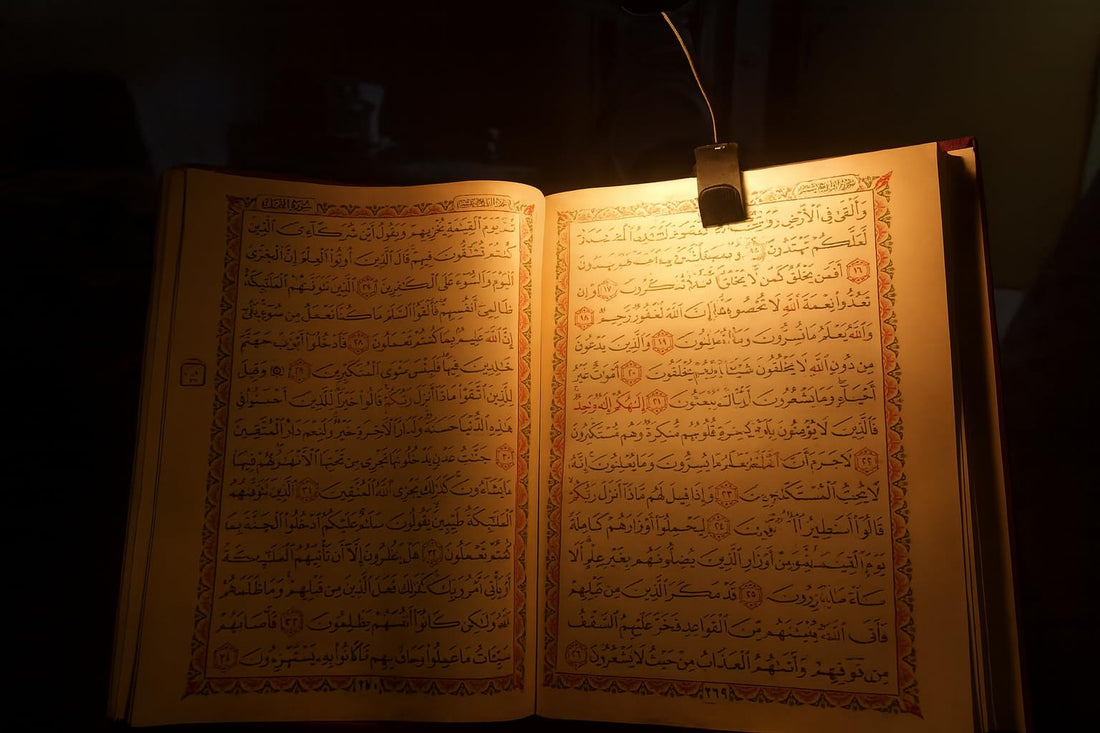 وَأَلْقَىٰ فِي ٱلْأَرْضِ
لَعَلَّكُمْ تَهْتَدُونَ ١٥
١٦ أَفَمَن يَخْلُقُ كَمَن لَّا يَخْلُقُ أَفَلَا تَذَكَّرُونَ ١٧ وَإِن
تَعُدُّوا۟ نِعْمَةَ ٱللَّهِ لَا تُحْصُوهَا إِنَّ ٱللَّهَ لَغَفُورٌ رَّحِيمٌ ١٨
وَٱللَّهُ يَعْلَمُ مَا تُسِرُّونَ وَمَا تُعْلِنُونَ ١٩ وَٱلَّذِينَ يَدْعُونَ
مِن دُونِ ٱللَّهِ لَا يَخْلُقُونَ شَيْـًٔا وَهُمْ يُخْلَقُونَ ٢٠ أَمْوَٰتٌ غَيْرُ
أَحْيَآءٍ وَمَا يَشْعُرُونَ أَيَّانَ يُبْعَثُونَ ٢١ إِلَٰهُكُمْ إِلَٰهٌ وَٰحِدٌ
فَٱلَّذِينَ لَا يُؤْمِنُونَ قُلُوبُهُم مُّنكِرَةٌ وَهُم مُّسْتَكْبِرُونَ
٢٢ لَا جَرَمَ أَنَّ ٱللَّهَ يَعْلَمُ مَا يُسِرُّونَ وَمَا يُعْلِنُونَ إِنَّهُۥ
لَا يُحِبُّ ٱلْمُسْتَكْبِرِينَ ٢٣ وَإِذَا قِيلَ لَهُم مَّاذَآ أَنزَلَ رَبُّكُمْ
قَالُوٓا۟ أَسَٰطِيرُ ٢٤ لِيَحْمِلُوٓا۟ أَوْزَارَهُمْ كَامِلَةً
يَوْمَ ٱلْقِيَٰمَةِ وَمِنْ أَوْزَارِ ٱلَّذِينَ يُضِلُّونَهُم بِغَيْرِ عِلْمٍ أَلَا
سَآءَ مَا يَزِرُونَ ٢٥ قَدْ مَكَرَ ٱلَّذِينَ مِن قَبْلِهِمْ
فَأَتَى ٱللَّهُ بُنْيَٰنَهُم مِّنَ ٱلْقَوَاعِدِ فَخَرَّ عَلَيْهِمُ ٱلسَّقْفُ
مِن فَوْقِهِمْ وَأَتَىٰهُمُ ٱلْعَذَابُ مِنْ حَيْثُ لَا يَشْعُرُونَ ٢٦
٢٦٩
سُورَةُ النَّحْلِ
ثُمَّ يَوْمَ ٱلْقِيَٰمَةِ يُخْزِيهِمْ وَيَقُولُ أَيْنَ شُرَكَآءِىَ ٱلَّذِينَ
كُنتُمْ تُشَٰٓقُّونَ فِيهِمْ قَالَ ٱلَّذِينَ أُوتُوا۟ ٱلْعِلْمَ إِنَّ ٱلْخِزْىَ
ٱلْيَوْمَ وَٱلسُّوٓءَ عَلَى ٱلْكَٰفِرِينَ ٢٧ ٱلَّذِينَ تَتَوَفَّىٰهُمُ ٱلْمَلَٰٓئِكَةُ
ظَالِمِىٓ أَنفُسِهِمْ فَأَلْقَوُا۟ ٱلسَّلَمَ مَا كُنَّا نَعْمَلُ مِن سُوٓءٍۭ بَلَىٰٓ
إِنَّ ٱللَّهَ عَلِيمٌۢ بِمَا كُنتُمْ تَعْمَلُونَ ٢٨ فَٱدْخُلُوٓا۟ أَبْوَٰبَ جَهَنَّمَ
خَٰلِدِينَ فِيهَا فَلَبِئْسَ مَثْوَى ٱلْمُتَكَبِّرِينَ ٢٩ ۞ وَقِيلَ
لِلَّذِينَ ٱتَّقَوْا۟ مَاذَآ أَنزَلَ رَبُّكُمْ قَالُوا۟ خَيْرًا لِّلَّذِينَ أَحْسَنُوا۟ فِى
هَٰذِهِ ٱلدُّنْيَا حَسَنَةٌ وَلَدَارُ ٱلْءَاخِرَةِ خَيْرٌ وَلَنِعْمَ دَارُ ٱلْمُتَّقِينَ
٣٠ جَنَّٰتُ عَدْنٍ يَدْخُلُونَهَا تَجْرِى مِن تَحْتِهَا ٱلْأَنْهَٰرُ لَهُمْ فِيهَا
مَا يَشَآءُونَ كَذَٰلِكَ يَجْزِى ٱللَّهُ ٱلْمُتَّقِينَ ٣١ ٱلَّذِينَ تَتَوَفَّىٰهُمُ
ٱلْمَلَٰٓئِكَةُ طَيِّبِينَ يَقُولُونَ سَلَٰمٌ عَلَيْكُمُ ٱدْخُلُوا۟ ٱلْجَنَّةَ بِمَا
كُنتُمْ تَعْمَلُونَ ٣٢ هَلْ يَنظُرُونَ إِلَّآ أَن تَأْتِيَهُمُ ٱلْمَلَٰٓئِكَةُ
أَوْ يَأْتِىَ أَمْرُ رَبِّكَ كَذَٰلِكَ فَعَلَ ٱلَّذِينَ مِن قَبْلِهِمْ وَمَا ظَلَمَهُمُ
ٱللَّهُ وَلَٰكِن كَانُوٓا۟ أَنفُسَهُمْ يَظْلِمُونَ ٣٣ فَأَصَابَهُمْ
سَيِّـَٔاتُ مَا عَمِلُوا۟ وَحَاقَ بِهِم مَّا كَانُوا۟ بِهِۦ يَسْتَهْزِءُونَ ٣٤
٢٧٠